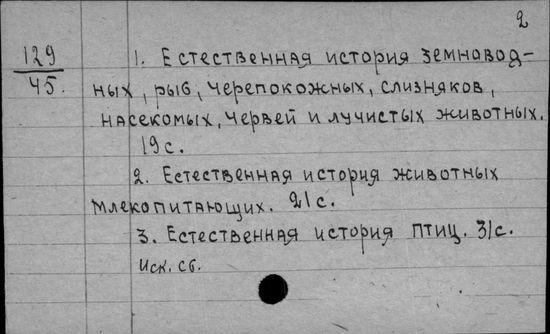 2
129
45.
1. Естественная история земновод-
ных, рыб, черепокожных, слизняков,
насекомых, червей и лучистых животных.
19 с.
2. Естественная история животных
млекопитающих. 21 с.
3. Естественная история птиц. 31 с.
Иск. сб.